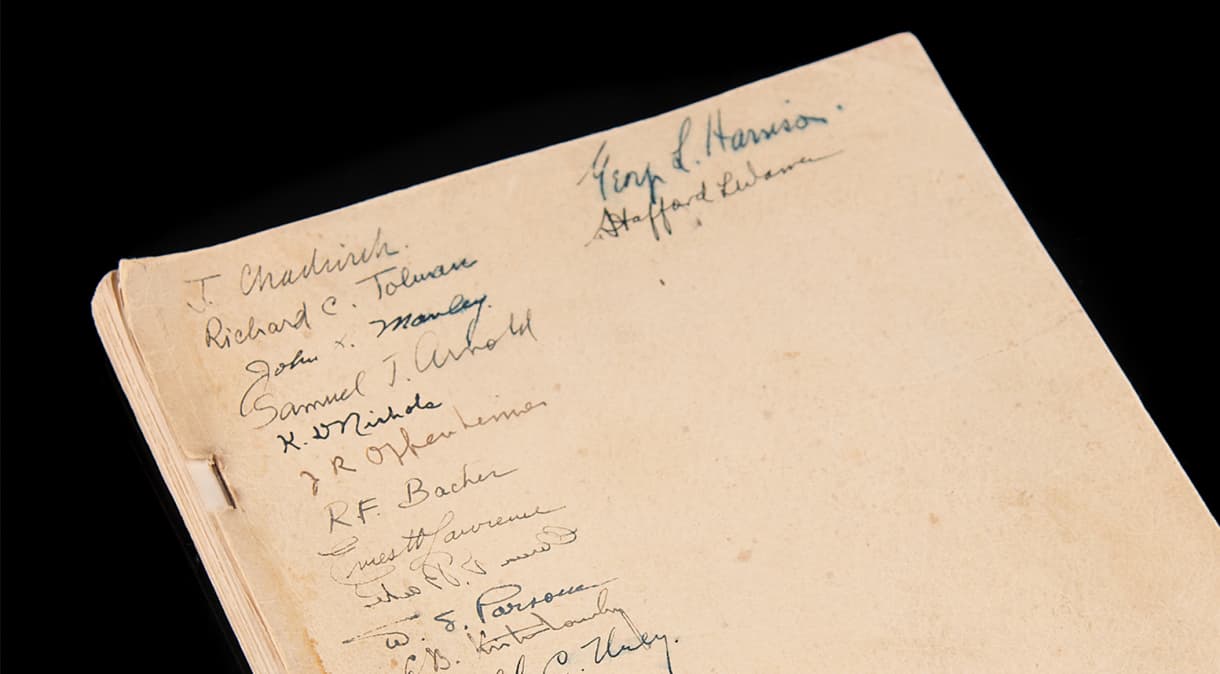 J. Chadwick.
Richard C. Tolman
John H. Manley.
Samuel T. Arnold
K. D Nichols
J R Oppenheimer
R.F. Bacher
Ernest O Lawrence
W. S. Parsons
G.B. Kistiakowsky
C. Urey.
George L. Harrison.
Stafford L Warren